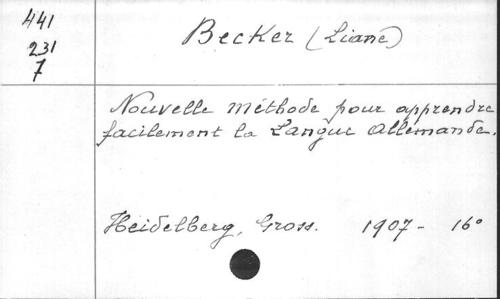 441
231
7
Becker (Liane)
Nouvelle méthode pour apprendre
facilement la Langue Allemande.
Heidelberg, Gross. 1907 - 16°